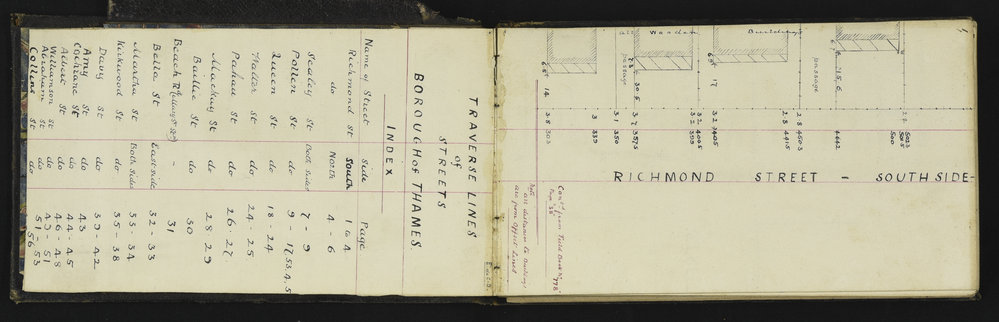 TRAVERSE LINES
of
STREETS
BOROUGH of THAMES
INDEX
Name of Street Side Page
Richmond St South 1 to 4
do North 4 - 6
Sealey St Both Sides 7 - 9
Pollen St do 9 - 17.53.4.5
Queen St do 18 - 24
Walter St do 24 - 25
Pahau St do 26 - 27
Mackay St do 28 - 29
Baillie St do 30
Beach Rd - 31
Bella St East Side 32 - 33
Martha St Both Sides 33 - 34
Kirkwood St do 35 - 38
Davy St do 39 - 42
Amy St do 43
Cochrane St do 44 - 45
Albert St do 46 - 48
Williamson St do 49 - 51
Abraham St do 51 - 53
Collins St do 56
RICHMOND STREET - SOUTH SIDE -
Wooden Buildings
passage
passage
14
20.5
17
15.6
3.8 303
3 339
3.1 350
3.2 3875
3.2 399
3.2 4005
3.2 4405
2.8 4415
2.8 4503
4642
500
5005
5003
2.4
Cont'd from Field Book No "778"
Page "38"
Note
all distances to buildings
are from offset lines